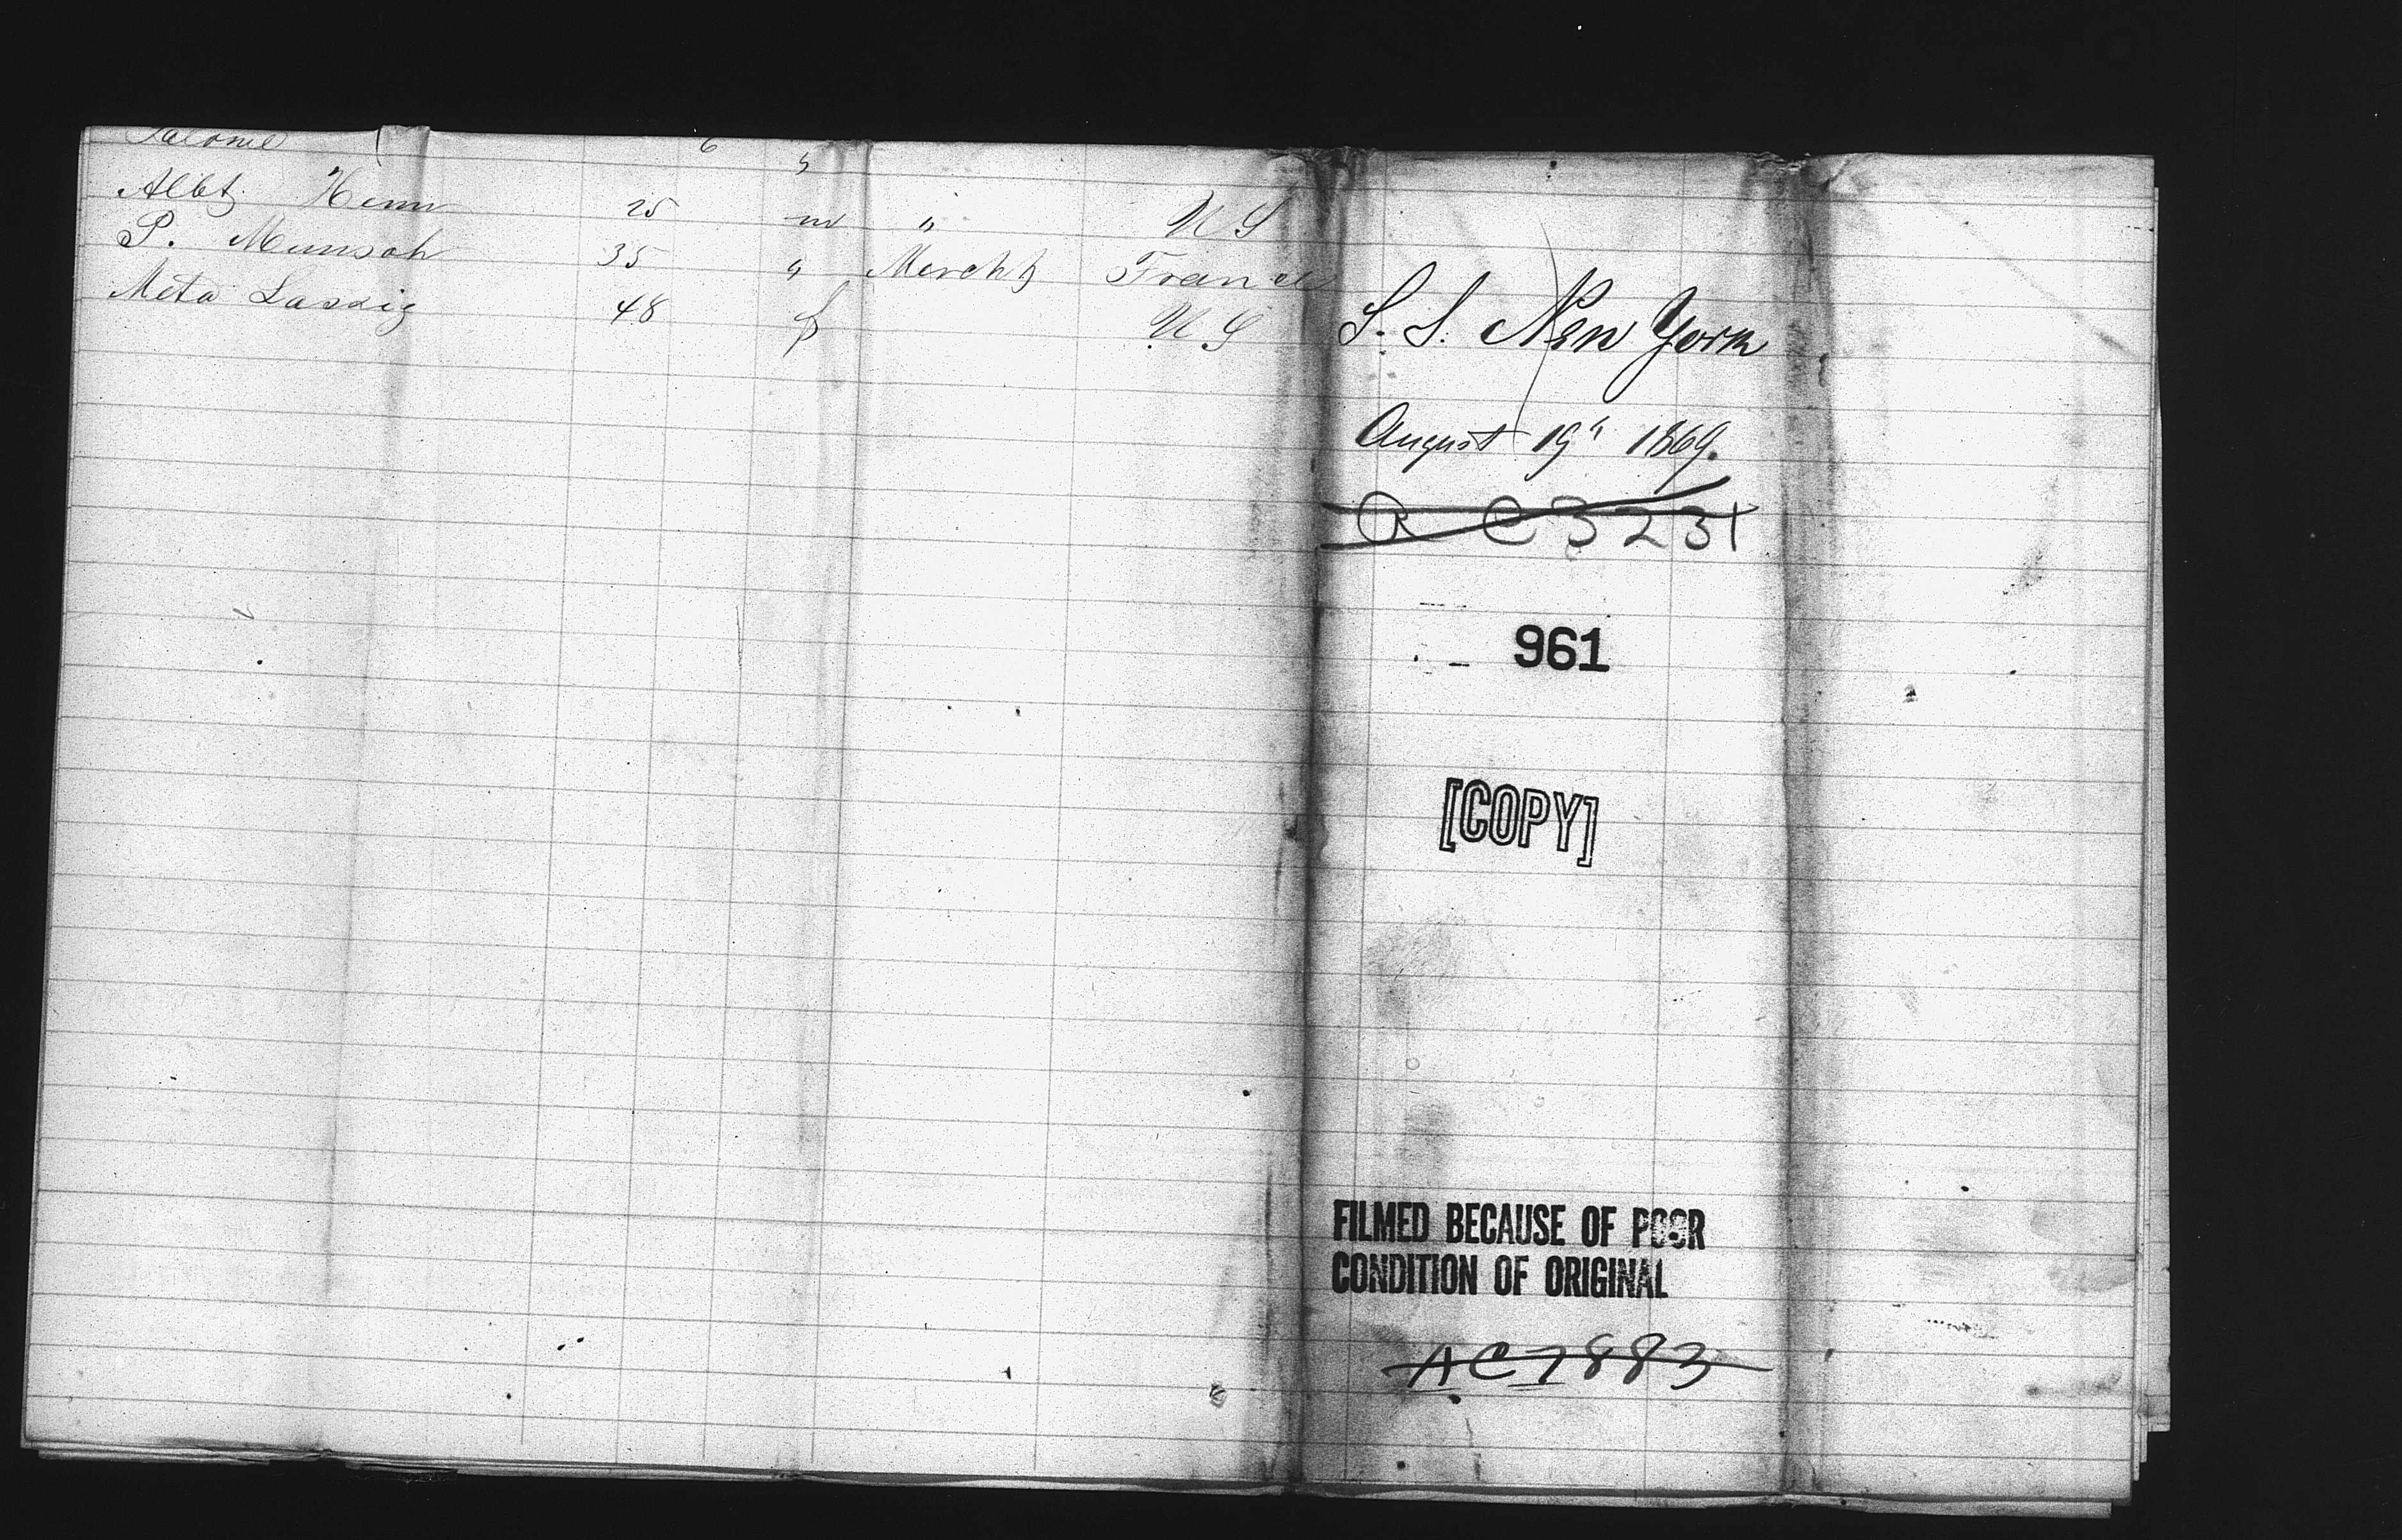 Salome 6 "
Albt. Henn 25 m " U S
P. Munsch 35 " Mercht France
Meta Lassig 48 f U S
S. S. New York
August 19" 1869.
C 3231
961
[COPY]
FILMED BECAUSE OF POOR
CONDITION OF ORIGINAL
AC 7883